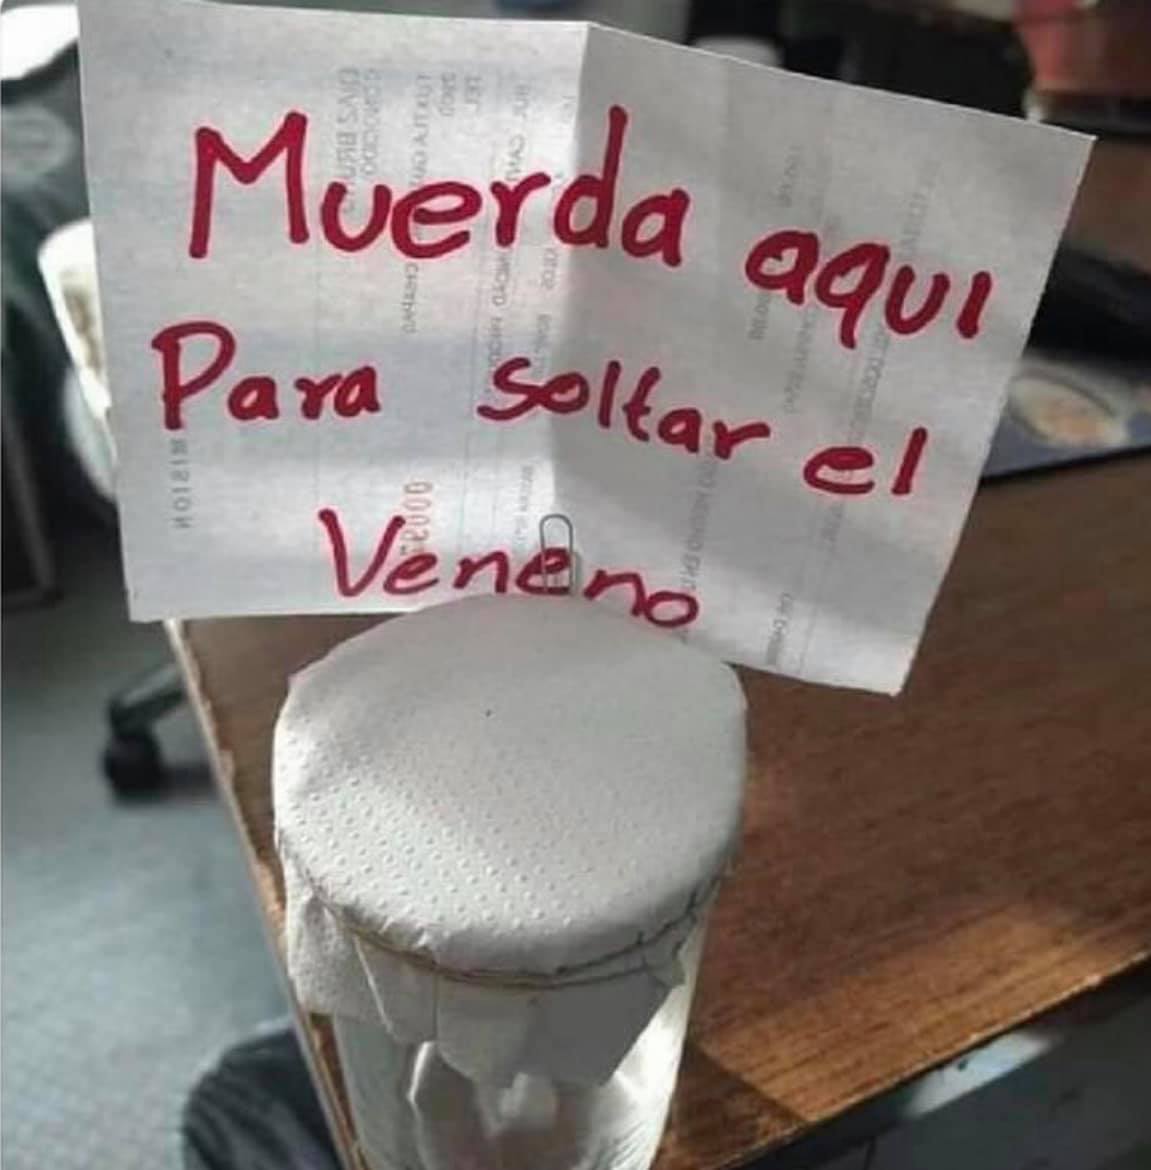 Muerda aqui
Para soltar el
Veneno